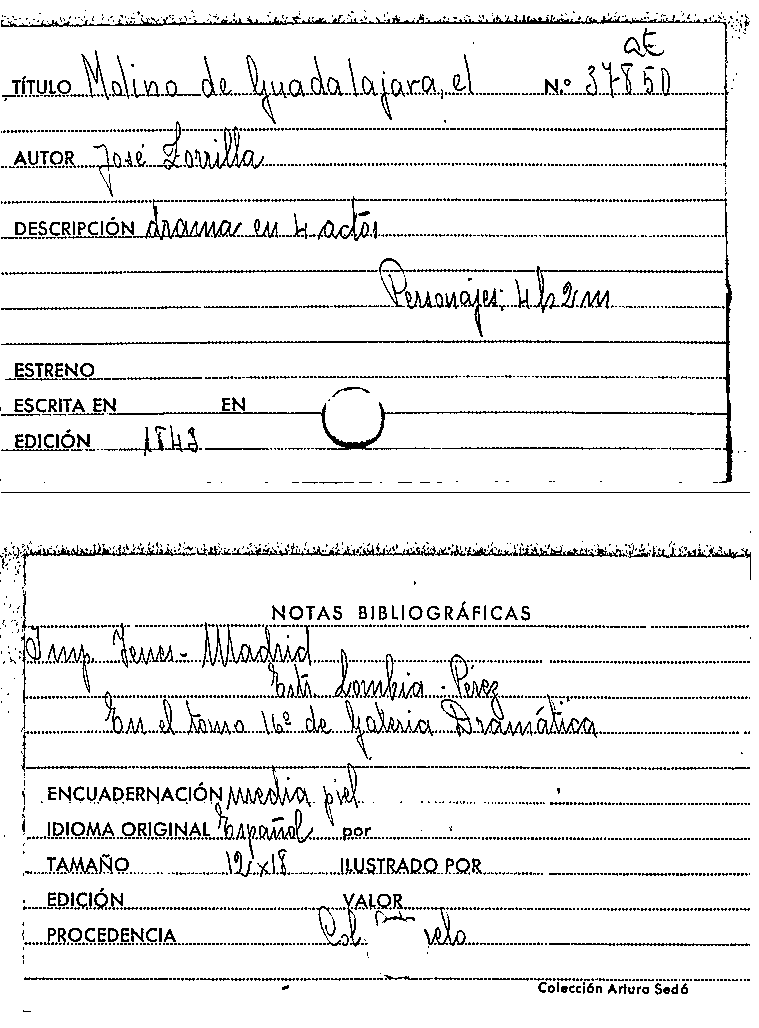 at
TÍTULO Molino de Guadalajara, el N.º 37850
AUTOR José Zorrilla
DESCRIPCIÓN drama en 4 actos
Personajes: 4 h 2 m
ESTRENO
ESCRITA EN EN
EDICIÓN 1843
NOTAS BIBLIOGRÁFICAS
Imp. Yenes - Madrid
Estr. Lombia - Pérez
En el tomo 16º de Galeria Dramática
ENCUADERNACIÓN media piel
IDIOMA ORIGINAL Español por
TAMAÑO 12 x 18 ILUSTRADO POR
EDICIÓN VALOR
PROCEDENCIA Col.
Colección Arturo Sedó